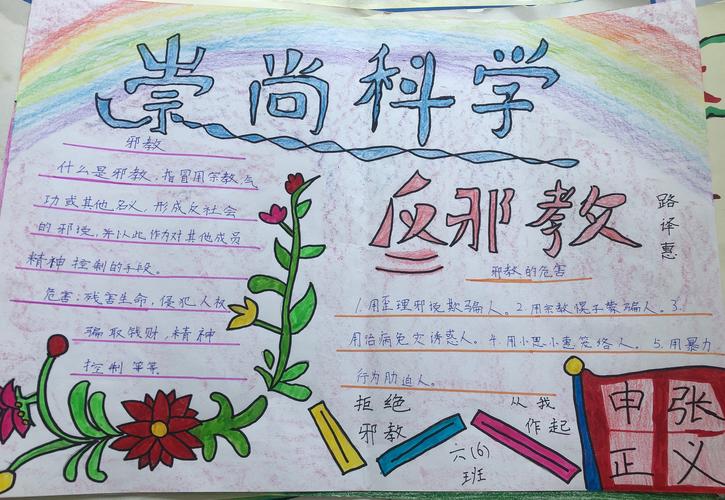 崇尚科学
邪教
什么是邪教,指冒用宗教,气
功或其他名义,形成反社会
的邪说,并以此作为对其他成员
精神控制的手段。
危害:残害生命,侵犯人权
骗取钱财,精神
控制等等
反邪教
路译惠
邪教的危害
1.用歪理邪说欺骗人。2.用宗教幌子蒙骗人。3.
用治病免灾诱惑人。4.用小恩小惠笼络人。5.用暴力
行为胁迫人。
拒绝
邪教
从我
作起
六(6)
班
申张
正义